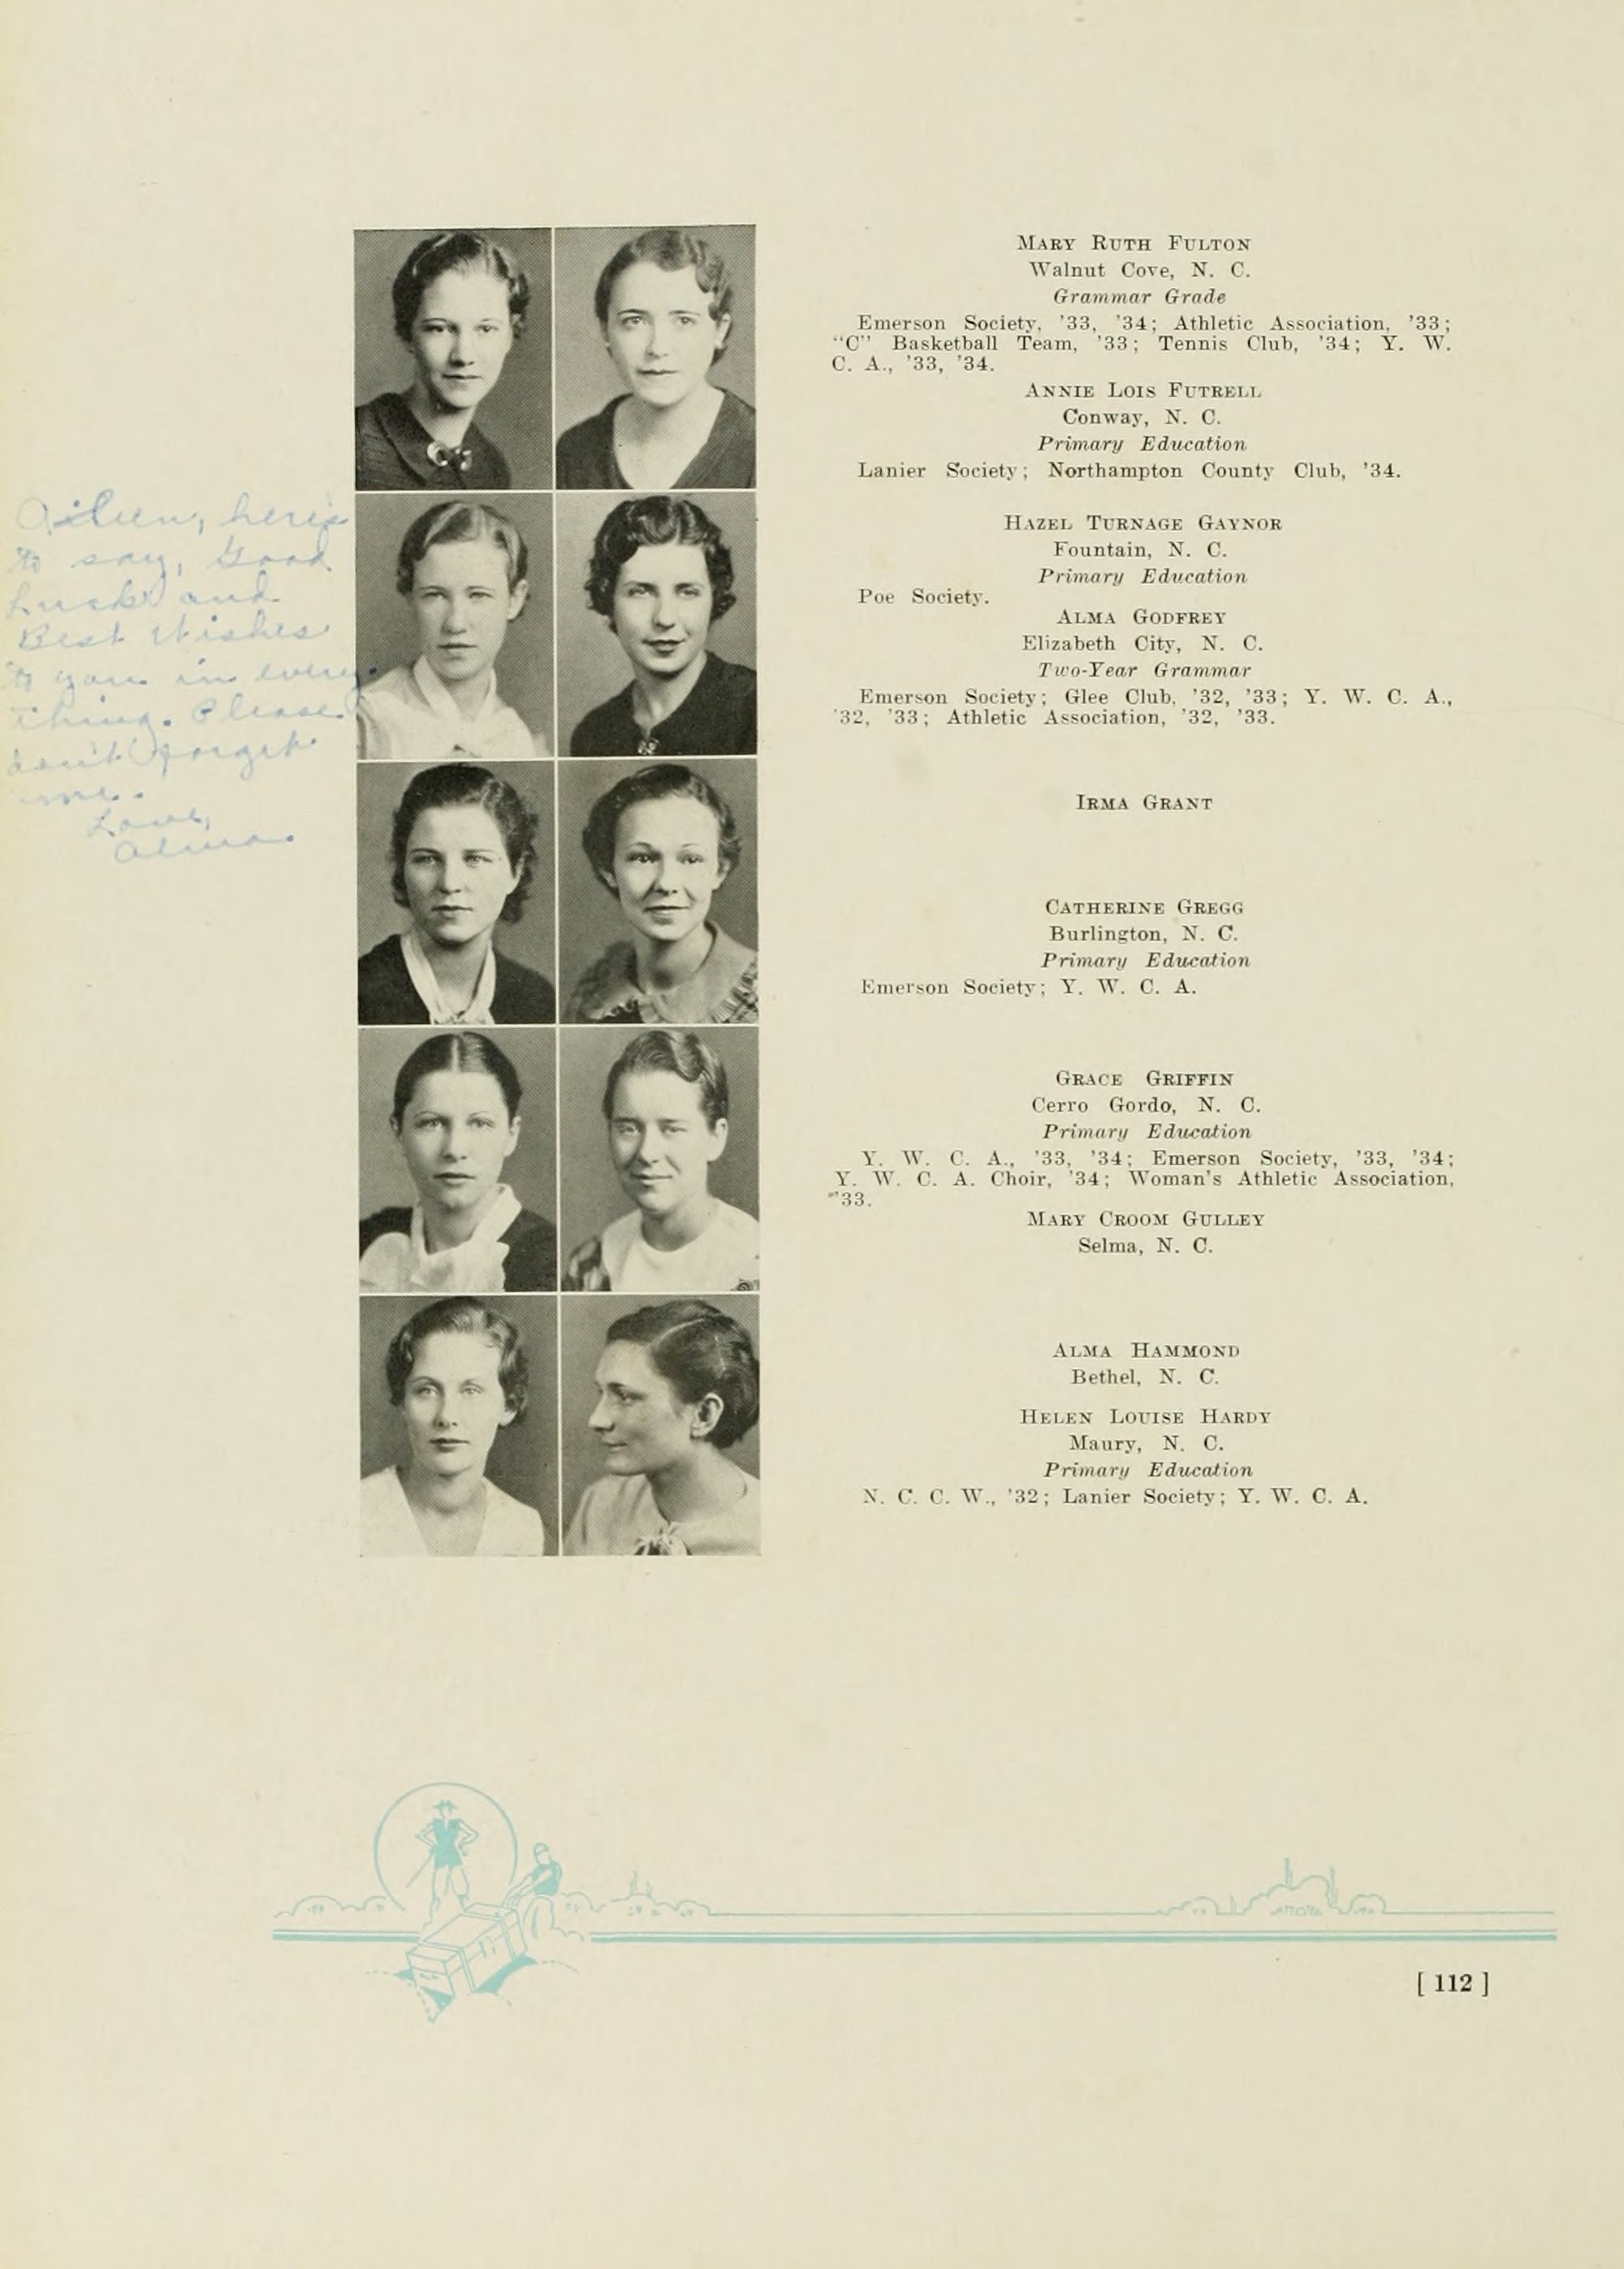 Aileen, here's
to say, Good
Luck and
Best Wishes
to you in every
thing. Please
don't forget
me.
Love,
Alma.
MARY RUTH FULTON
Walnut Cove, N. C.
Grammar Grade
Emerson Society, '33, '34; Athletic Association, '33;
"C" Basketball Team, '33; Tennis Club, '34; Y. W.
C. A., '33, '34.
ANNIE LOIS FUTRELL
Conway, N. C.
Primary Education
Lanier Society; Northampton County Club, '34.
HAZEL TURNAGE GAYNOR
Fountain, N. C.
Primary Education
Poe Society.
ALMA GODFREY
Elizabeth City, N. C.
Two-Year Grammar
Emerson Society; Glee Club, '32, '33; Y. W. C. A.,
'32, '33; Athletic Association, '32, '33.
IRMA GRANT
CATHERINE GREGG
Burlington, N. C.
Primary Education
Emerson Society; Y. W. C. A.
GRACE GRIFFIN
Cerro Gordo, N. C.
Primary Education
Y. W. C. A., '33, '34; Emerson Society, '33, '34;
Y. W. C. A. Choir, '34; Woman's Athletic Association,
'33.
MARY CROOM GULLEY
Selma, N. C.
ALMA HAMMOND
Bethel, N. C.
HELEN LOUISE HARDY
Maury, N. C.
Primary Education
N. C. C. W., '32; Lanier Society; Y. W. C. A.
[ 112 ]